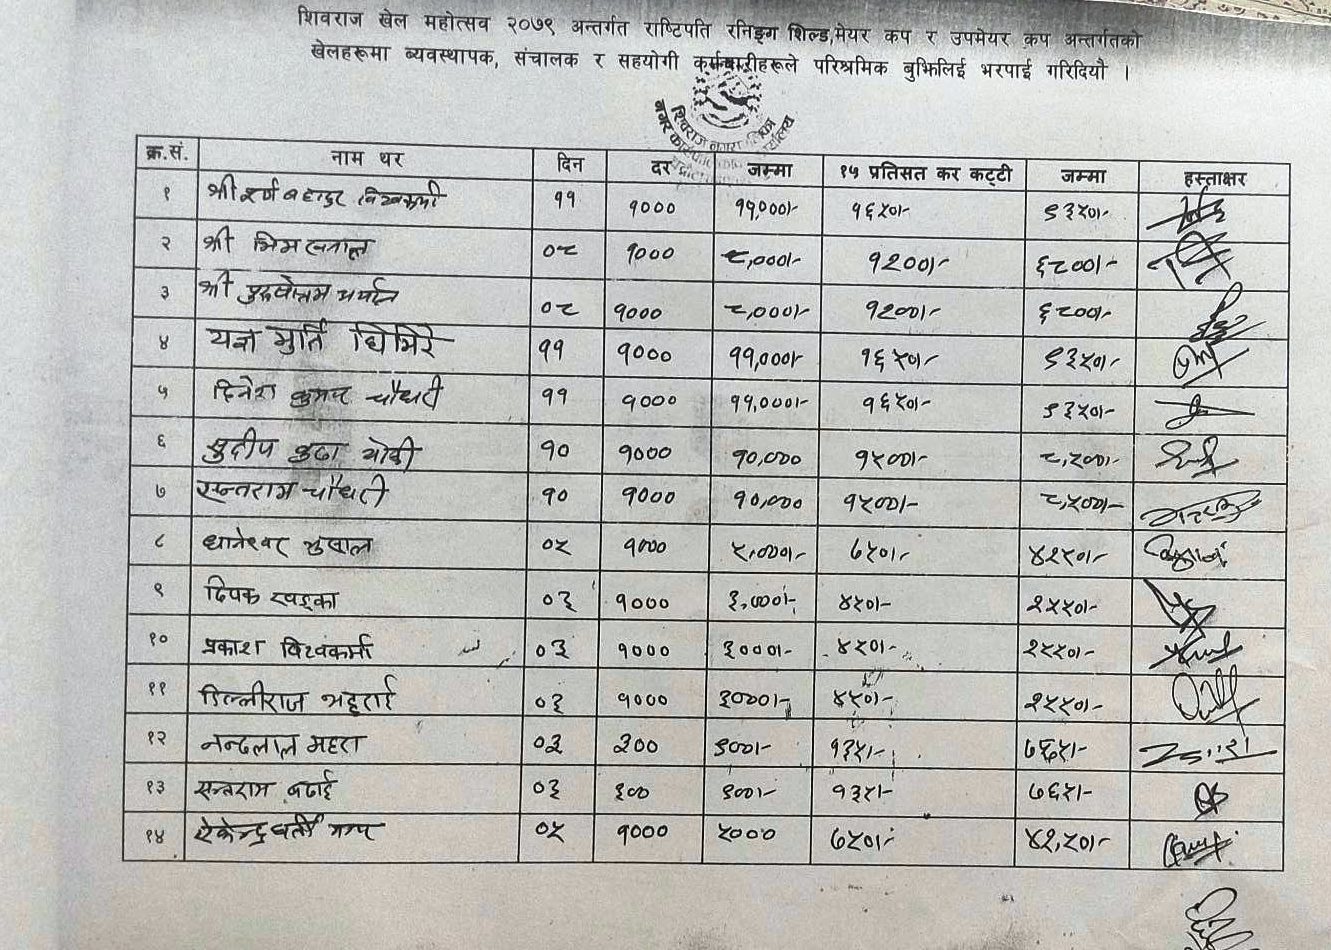 शिवराज खेल महोत्सव २०७९ अन्तर्गत राष्टिपति रनिङ्ग शिल्ड,मेयर कप र उपमेयर कप अन्तर्गतको
खेलहरूमा ब्यवस्थापक, संचालक र सहयोगी कर्मचारीहरूले परिश्रमिक बुझिलिई भरपाई गरिदियौ ।
क्र.सं. नाम थर दिन दर जम्मा १५ प्रतिसत कर कट्टी जम्मा हस्ताक्षर
१ श्री बहादुर विश्वकर्मा ११ १००० ११,०००।- १६५०।- ९३५०।-
२ श्री भिम ०८ १००० ८,०००।- १२००।- ६८००।-
३ श्री पुरुषोत्तम ०८ १००० ८,०००।- १२००।- ६८००।-
४ यज्ञ मुर्ति घिमिरे ११ १००० ११,०००।- १६५०।- ९३५०।-
५ दिनेश कुमार चौधरी ११ १००० ११,०००।- १६५०।- ९३५०।-
६ सुदीप बुढा योगी १० १००० १०,००० १५००।- ८,५००।-
७ सन्तराम चौधरी १० १००० १०,००० १५००।- ८,५००।-
८ भुसाल ०५ १००० ५,०००।- ७५०।- ४२५०।-
९ दिपक खड्का ०३ १००० ३,०००।- ४५०।- २५५०।-
१० प्रकाश विश्वकर्मा ०३ १००० ३०००।- ४५०।- २५५०।-
११ डिल्लीराज भट्टराई ०३ १००० ३०००।- ४५०।- २५५०।-
१२ नन्दलाल महरा ०३ ३०० ९००।- १३५।- ७६५।-
१३ सन्तराम बढाई ०३ ३०० ९००।- १३५।- ७६५।-
१४ घर्ती मगर ०५ १००० ५००० ७५०।- ४२,५०।-